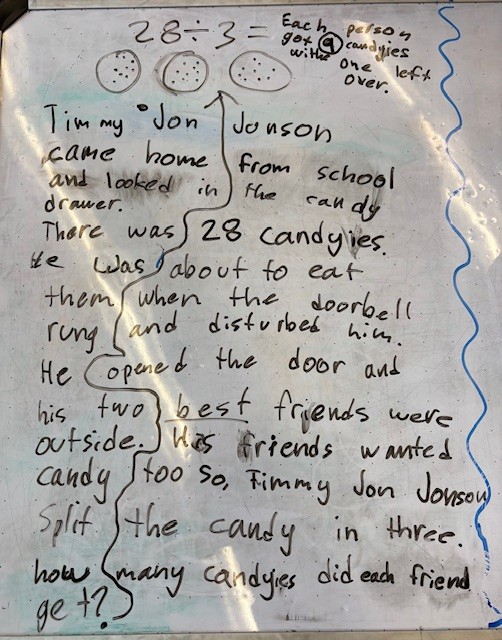 28÷3 =
Each person
got 9 candyies
withe one left
over.
Timmy Jon Jonson
came home from school
and looked in the candy
drawer.
There was 28 candyies.
He was about to eat
them when the doorbell
rung and disturbed him.
He opened the door and
his two best friends were
outside. His friends wanted
candy too so, Timmy Jon Jonson
Split the candy in three.
how many candyies did each friend
get?